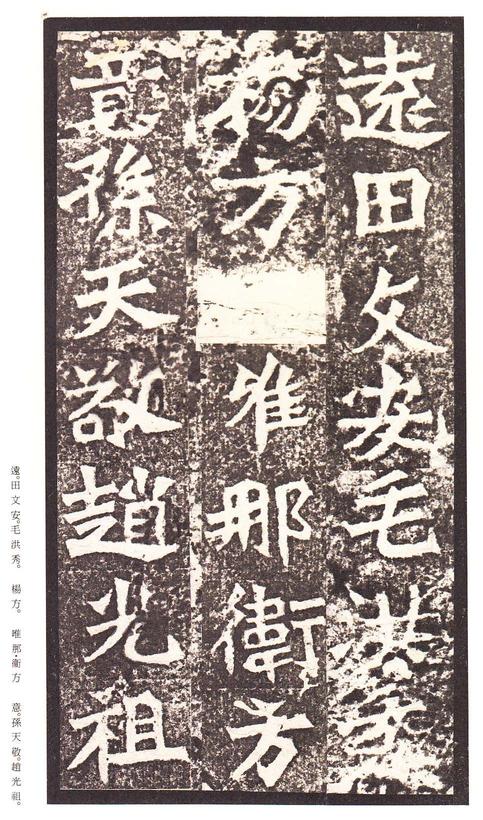 遠田文安毛洪秀
楊方 唯那衛方
意孫天敬趙光祖
遠。田文安。毛洪秀。 楊方。 唯那·衛方 意。孫天敬。趙光祖。